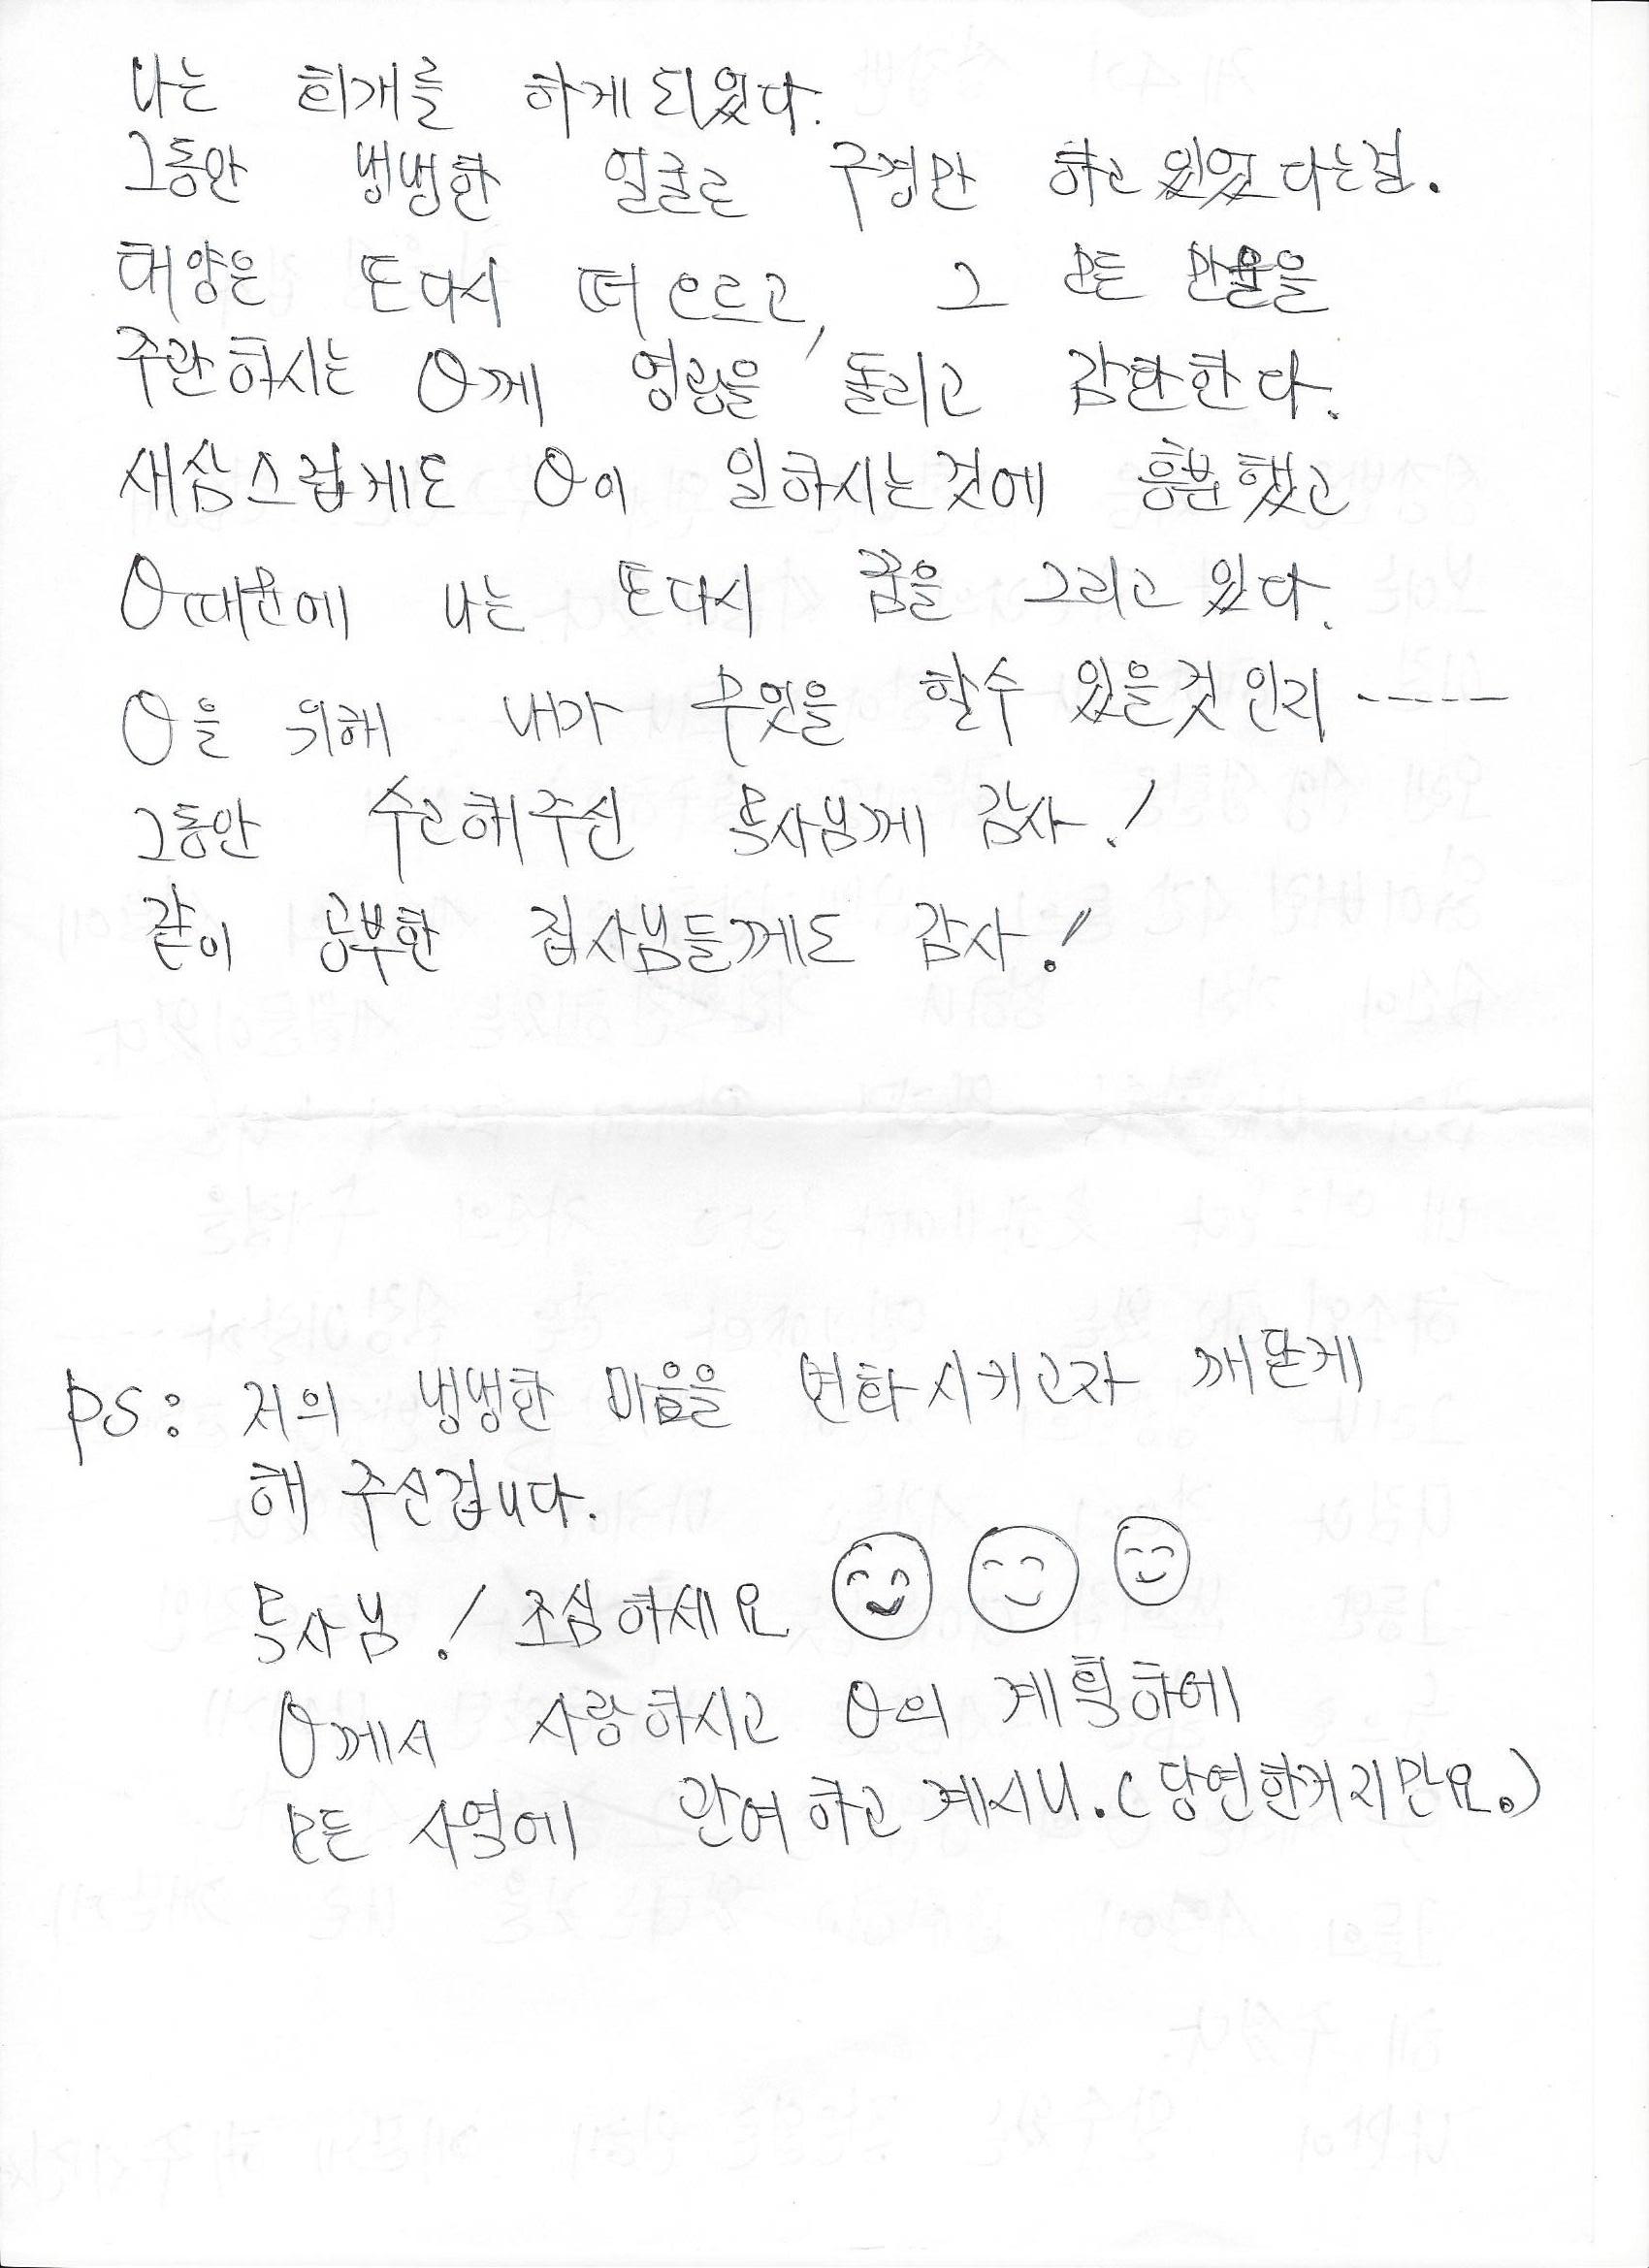 나는 회개를 하게 되었다.
그동안 냉냉한 얼굴로 구경만 하고 있었다는걸.
태양은 또다시 떠오르고, 그 모든 만물을
주관하시는 O께 영광을 돌리고 감탄한다.
새삼스럽게도 O이 일하시는것에 흥분했고
O때문에 나는 또다시 꿈을 그리고 있다.
O을 위해 내가 무엇을 할수 있을것인지 -----
그동안 수고해주신 목사님께 감사!
같이 공부한 집사님들께도 감사!
PS: 저의 냉냉한 마음을 변화시키고자 깨닫게
해 주신겁니다.
목사님! 조심하세요
O께서 사랑하시고 O의 계획하에
모든 사역에 관여하고 계시니.(당연한거지만요.)